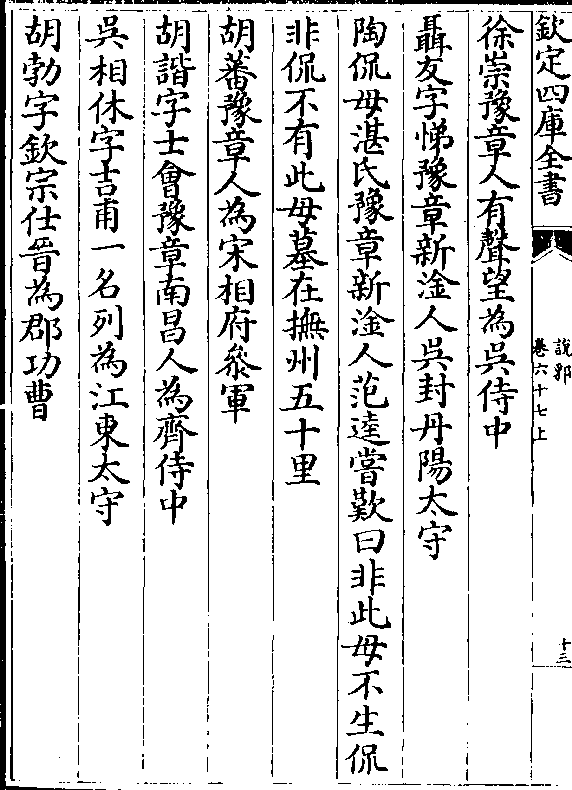 欽定四庫全書
說郛
卷六十七上
十三
徐崇豫章人有聲望為吳侍中
聶友字悌豫章新淦人吳封丹陽太守
陶侃母湛氏豫章新淦人范逵嘗歎曰非此母不生侃
非侃不有此母墓在撫州五十里
胡蕃豫章人為宋相府叅軍
胡諧字士會豫章南昌人為齊侍中
吳相休字吉甫一名列為江東太守
胡勃字欽宗仕晉為郡功曹